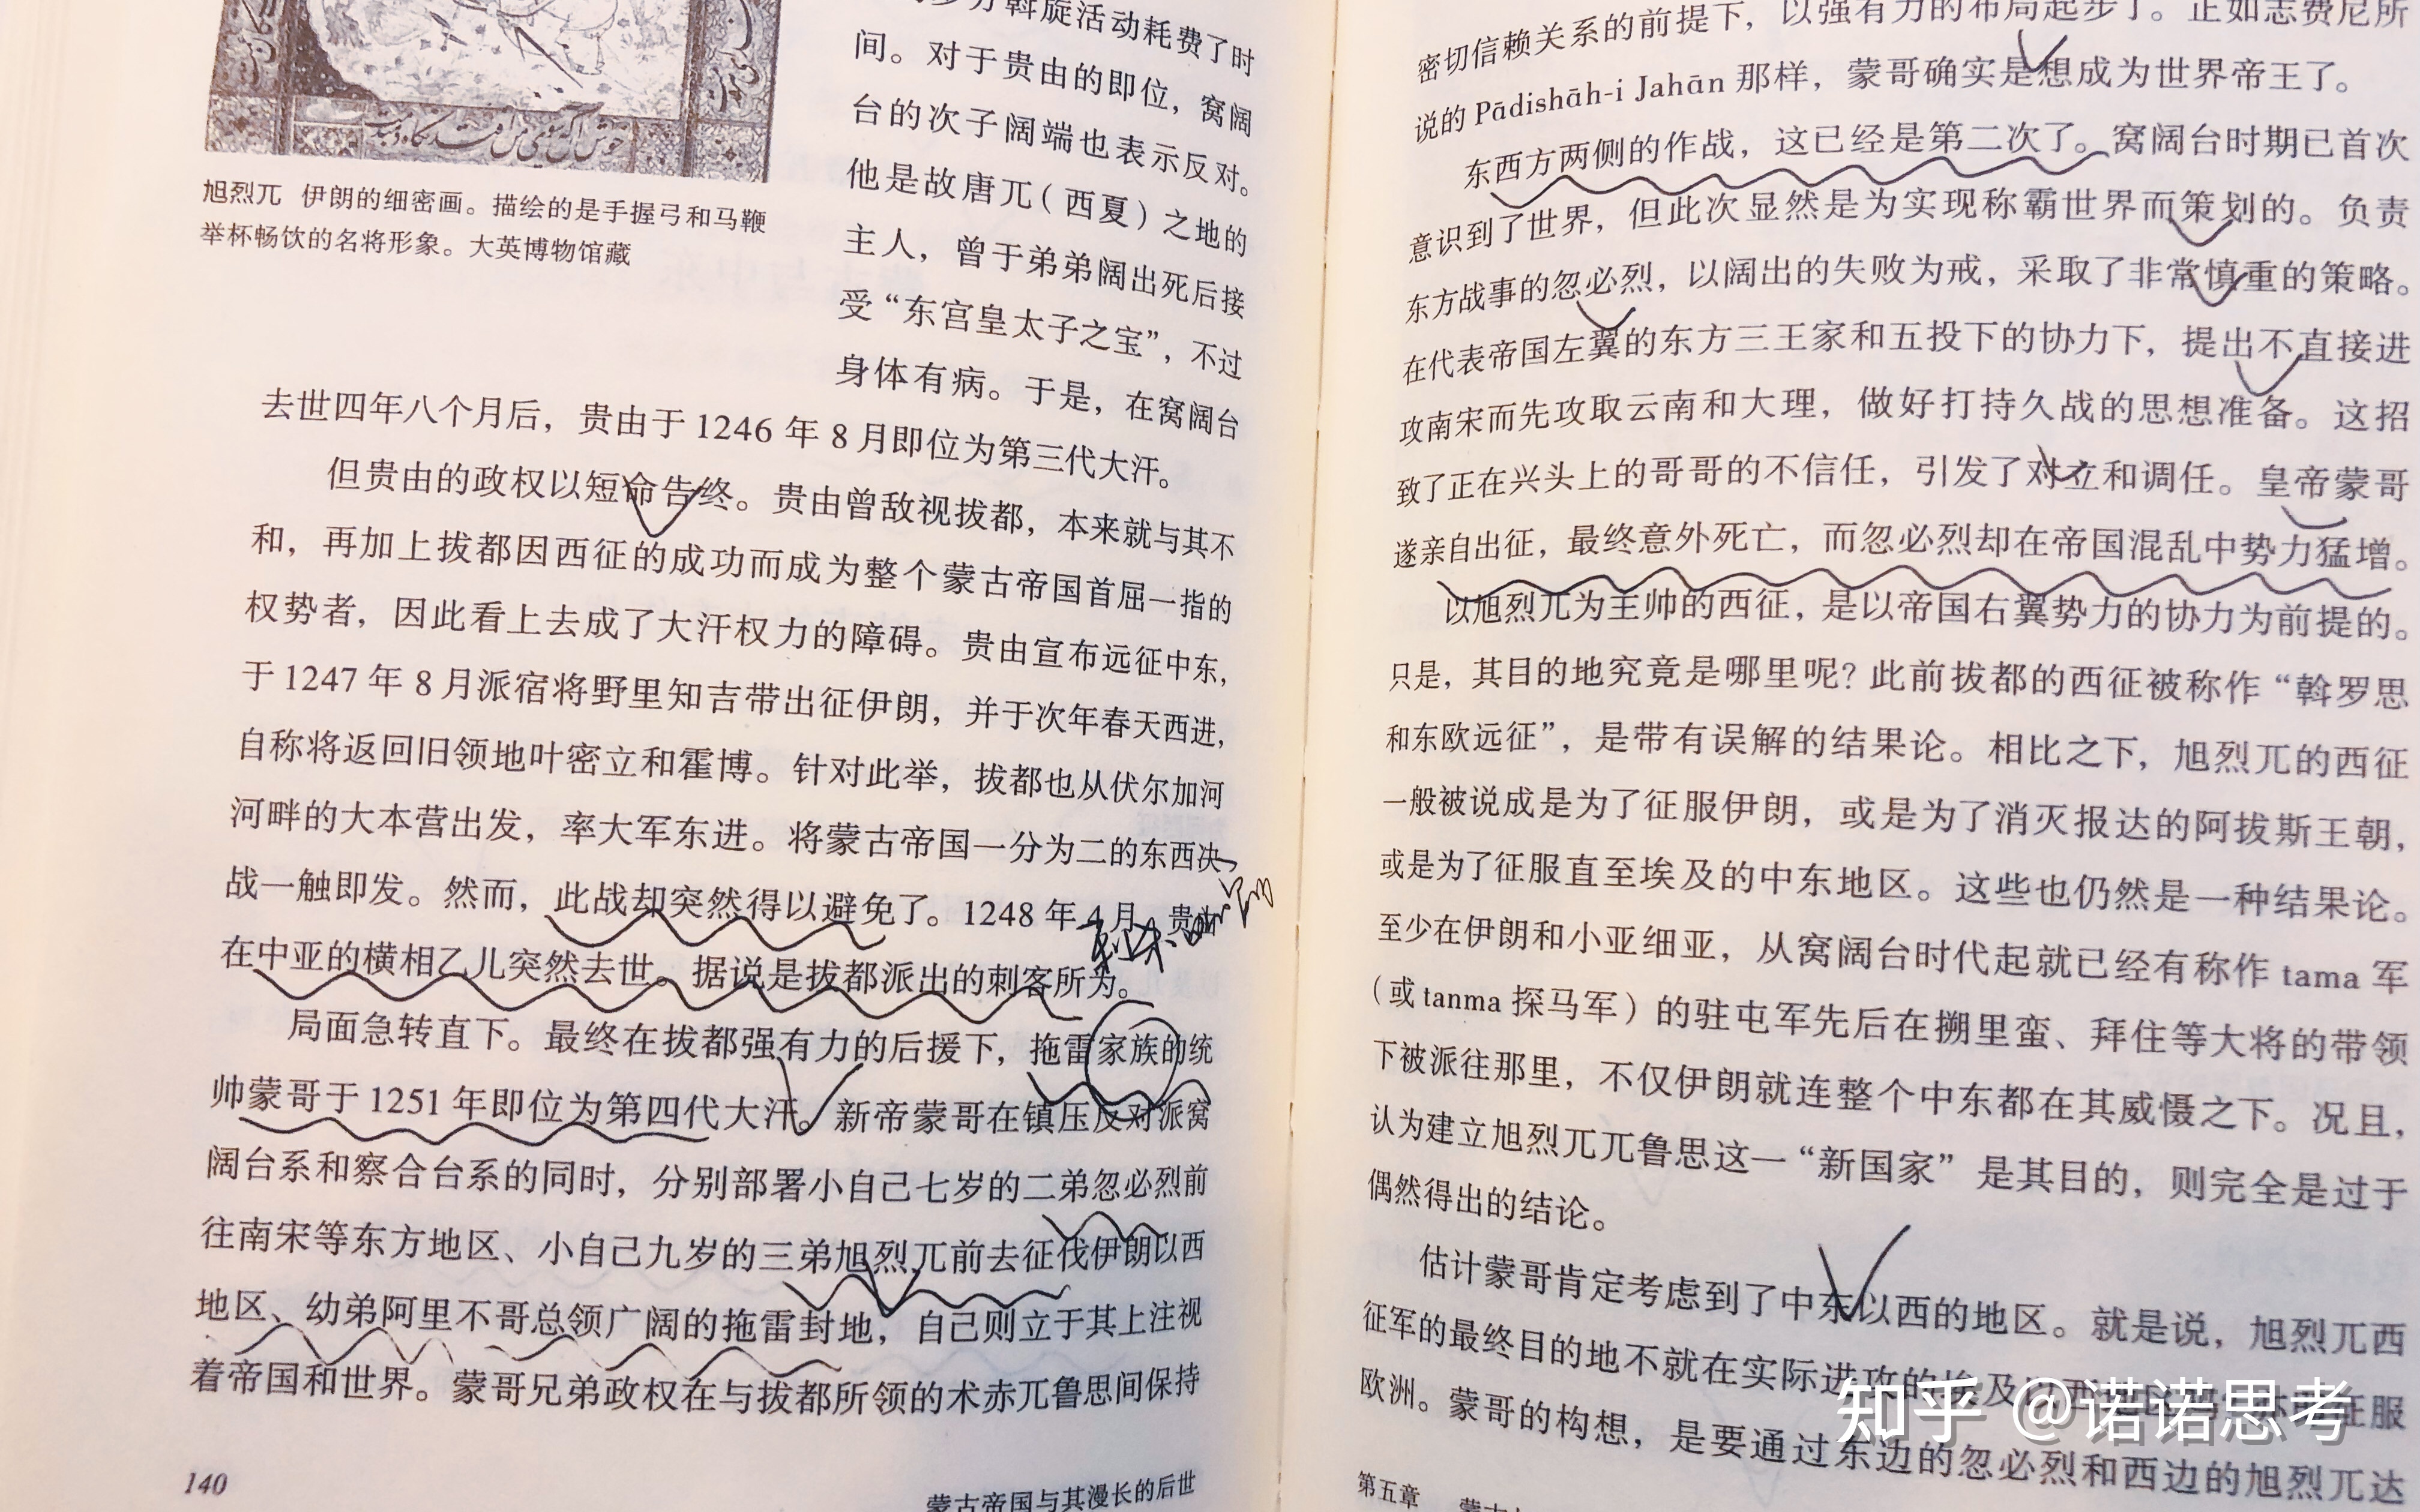 斡旋活动耗费了时
间。对于贵由的即位，窝阔
台的次子阔端也表示反对。
他是故唐兀（西夏）之地的
主人，曾于弟弟阔出死后接
受“东宫皇太子之宝”，不过
身体有病。于是，在窝阔台
旭烈兀 伊朗的细密画。描绘的是手握弓和马鞭
举杯畅饮的名将形象。大英博物馆藏
去世四年八个月后，贵由于 1246 年 8 月即位为第三代大汗。
但贵由的政权以短命告终。贵由曾敌视拔都，本来就与其不
和，再加上拔都因西征的成功而成为整个蒙古帝国首屈一指的
权势者，因此看上去成了大汗权力的障碍。贵由宣布远征中东，
于 1247 年 8 月派宿将野里知吉带出征伊朗，并于次年春天西进，
自称将返回旧领地叶密立和霍博。针对此举，拔都也从伏尔加河
河畔的大本营出发，率大军东进。将蒙古帝国一分为二的东西决
战一触即发。然而，此战却突然得以避免了。1248 年 4 月，贵由
在中亚的横相乙儿突然去世。据说是拔都派出的刺客所为。
局面急转直下。最终在拔都强有力的后援下，拖雷家族的统
帅蒙哥于 1251 年即位为第四代大汗。新帝蒙哥在镇压反对派窝
阔台系和察合台系的同时，分别部署小自己七岁的二弟忽必烈前
往南宋等东方地区、小自己九岁的三弟旭烈兀前去征伐伊朗以西
地区、幼弟阿里不哥总领广阔的拖雷封地，自己则立于其上注视
着帝国和世界。蒙哥兄弟政权在与拔都所领的术赤兀鲁思间保持
140
蒙古帝国与其漫长的后世
密切信赖关系的前提下，以强有力的布局起步了。正如志费尼所
说的 Pādishāh-i Jahān 那样，蒙哥确实是想成为世界帝王了。
东西方两侧的作战，这已经是第二次了。窝阔台时期已首次
意识到了世界，但此次显然是为实现称霸世界而策划的。负责
东方战事的忽必烈，以阔出的失败为戒，采取了非常慎重的策略。
在代表帝国左翼的东方三王家和五投下的协力下，提出不直接进
攻南宋而先攻取云南和大理，做好打持久战的思想准备。这招
致了正在兴头上的哥哥的不信任，引发了对立和调任。皇帝蒙哥
遂亲自出征，最终意外死亡，而忽必烈却在帝国混乱中势力猛增。
以旭烈兀为主帅的西征，是以帝国右翼势力的协力为前提的。
只是，其目的地究竟是哪里呢？此前拔都的西征被称作“斡罗思
和东欧远征”，是带有误解的结果论。相比之下，旭烈兀的西征
一般被说成是为了征服伊朗，或是为了消灭报达的阿拔斯王朝，
或是为了征服直至埃及的中东地区。这些也仍然是一种结果论。
至少在伊朗和小亚细亚，从窝阔台时代起就已经有称作 tama 军
（或 tanma 探马军）的驻屯军先后在搠里蛮、拜住等大将的带领
下被派往那里，不仅伊朗就连整个中东都在其威慑之下。况且，
认为建立旭烈兀兀鲁思这一“新国家”是其目的，则完全是过于
偶然得出的结论。
估计蒙哥肯定考虑到了中东以西的地区。就是说，旭烈兀西
征军的最终目的地不就在实际进攻的埃及以西地区 征服
欧洲。蒙哥的构想，是要通过东边的忽必烈和西边的旭烈兀达
第五章
知乎 @诺诺思考